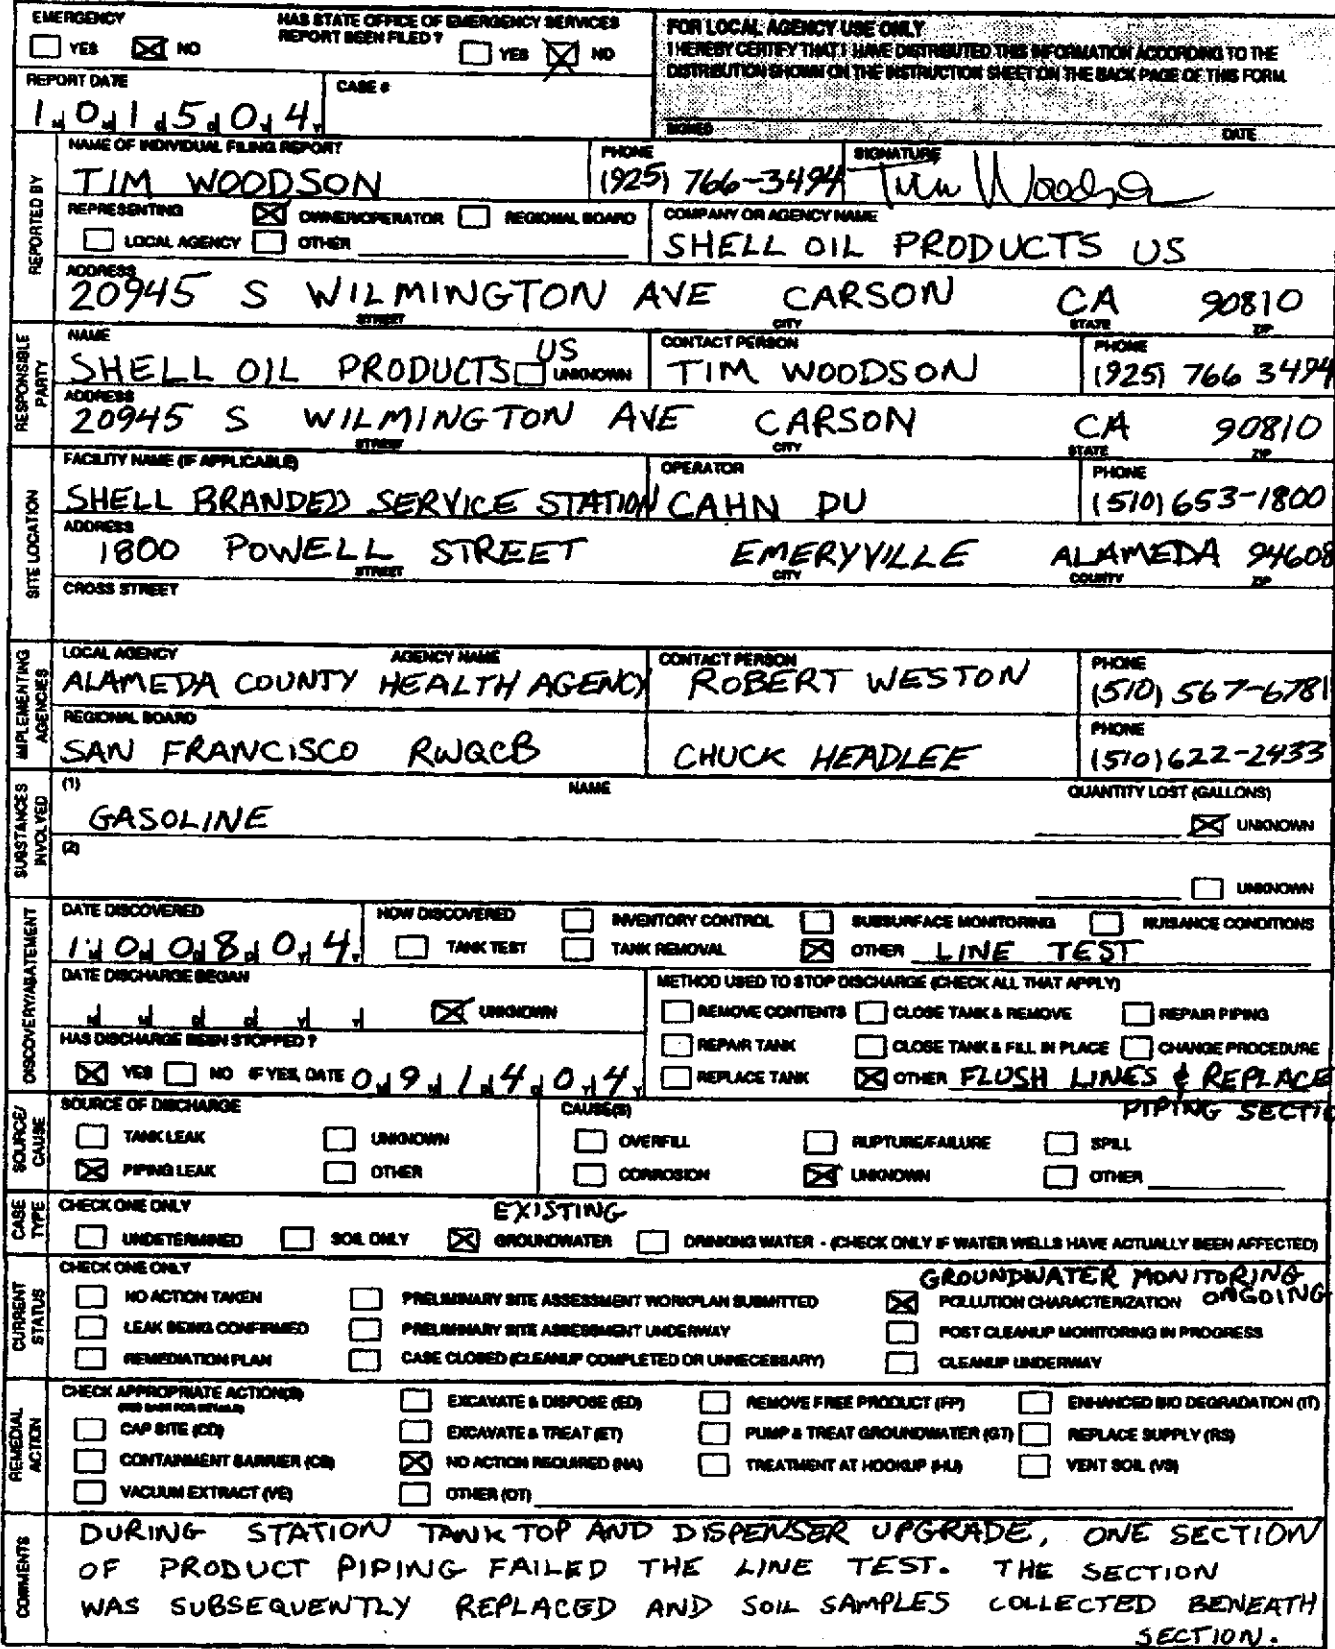 EMERGENCY
YES NO
HAS STATE OFFICE OF EMERGENCY SERVICES
REPORT BEEN FILED ? YES NO
REPORT DATE
CASE #
1 0 1 5 0 4
FOR LOCAL AGENCY USE ONLY
I HEREBY CERTIFY THAT I HAVE DISTRIBUTED THIS INFORMATION ACCORDING TO THE
DISTRIBUTION SHOWN ON THE INSTRUCTION SHEET ON THE BACK PAGE OF THIS FORM.
SIGNED DATE
REPORTED BY
NAME OF INDIVIDUAL FILING REPORT PHONE SIGNATURE
TIM WOODSON (925) 766-3494 Tim Woodson
REPRESENTING OWNER/OPERATOR REGIONAL BOARD
LOCAL AGENCY OTHER
COMPANY OR AGENCY NAME
SHELL OIL PRODUCTS US
ADDRESS
20945 S WILMINGTON AVE CARSON CA 90810
STREET CITY STATE ZIP
RESPONSIBLE PARTY
NAME CONTACT PERSON PHONE
SHELL OIL PRODUCTS US UNKNOWN TIM WOODSON (925) 766 3494
ADDRESS
20945 S WILMINGTON AVE CARSON CA 90810
STREET CITY STATE ZIP
SITE LOCATION
FACILITY NAME (IF APPLICABLE) OPERATOR PHONE
SHELL BRANDED SERVICE STATION CAHN DU (510) 653-1800
ADDRESS
1800 POWELL STREET EMERYVILLE ALAMEDA 94608
STREET CITY COUNTY ZIP
CROSS STREET
IMPLEMENTING AGENCIES
LOCAL AGENCY AGENCY NAME CONTACT PERSON PHONE
ALAMEDA COUNTY HEALTH AGENCY ROBERT WESTON (510) 567-6781
REGIONAL BOARD PHONE
SAN FRANCISCO RWQCB CHUCK HEADLEE (510) 622-2433
SUBSTANCES INVOLVED
(1) NAME QUANTITY LOST (GALLONS)
GASOLINE UNKNOWN
(2)
UNKNOWN
DISCOVERY/ABATEMENT
DATE DISCOVERED
1 0 0 8 0 4
HOW DISCOVERED INVENTORY CONTROL SUBSURFACE MONITORING NUISANCE CONDITIONS
TANK TEST TANK REMOVAL OTHER LINE TEST
DATE DISCHARGE BEGAN
UNKNOWN
HAS DISCHARGE BEEN STOPPED ?
YES NO IF YES, DATE 0 9 1 4 0 4
METHOD USED TO STOP DISCHARGE (CHECK ALL THAT APPLY)
REMOVE CONTENTS CLOSE TANK & REMOVE REPAIR PIPING
REPAIR TANK CLOSE TANK & FILL IN PLACE CHANGE PROCEDURE
REPLACE TANK OTHER FLUSH LINES & REPLACE
PIPING SECTIO
SOURCE/CAUSE
SOURCE OF DISCHARGE
TANK LEAK UNKNOWN
PIPING LEAK OTHER
CAUSE(S)
OVERFILL RUPTURE/FAILURE SPILL
CORROSION UNKNOWN OTHER
CASE TYPE
CHECK ONE ONLY EXISTING
UNDETERMINED SOIL ONLY GROUNDWATER DRINKING WATER - (CHECK ONLY IF WATER WELLS HAVE ACTUALLY BEEN AFFECTED)
CURRENT STATUS
CHECK ONE ONLY GROUNDWATER MONITORING
NO ACTION TAKEN PRELIMINARY SITE ASSESSMENT WORKPLAN SUBMITTED POLLUTION CHARACTERIZATION ONGOING
LEAK BEING CONFIRMED PRELIMINARY SITE ASSESSMENT UNDERWAY POST CLEANUP MONITORING IN PROGRESS
REMEDIATION PLAN CASE CLOSED (CLEANUP COMPLETED OR UNNECESSARY) CLEANUP UNDERWAY
REMEDIAL ACTION
CHECK APPROPRIATE ACTION(S) EXCAVATE & DISPOSE (ED) REMOVE FREE PRODUCT (FP) ENHANCED BIO DEGRADATION (IT)
(SEE BACK FOR DETAILS)
CAP SITE (CD) EXCAVATE & TREAT (ET) PUMP & TREAT GROUNDWATER (GT) REPLACE SUPPLY (RS)
CONTAINMENT BARRIER (CB) NO ACTION REQUIRED (NA) TREATMENT AT HOOKUP (HU) VENT SOIL (VS)
VACUUM EXTRACT (VE) OTHER (OT)
COMMENTS
DURING STATION TANK TOP AND DISPENSER UPGRADE, ONE SECTION
OF PRODUCT PIPING FAILED THE LINE TEST. THE SECTION
WAS SUBSEQUENTLY REPLACED AND SOIL SAMPLES COLLECTED BENEATH
SECTION.